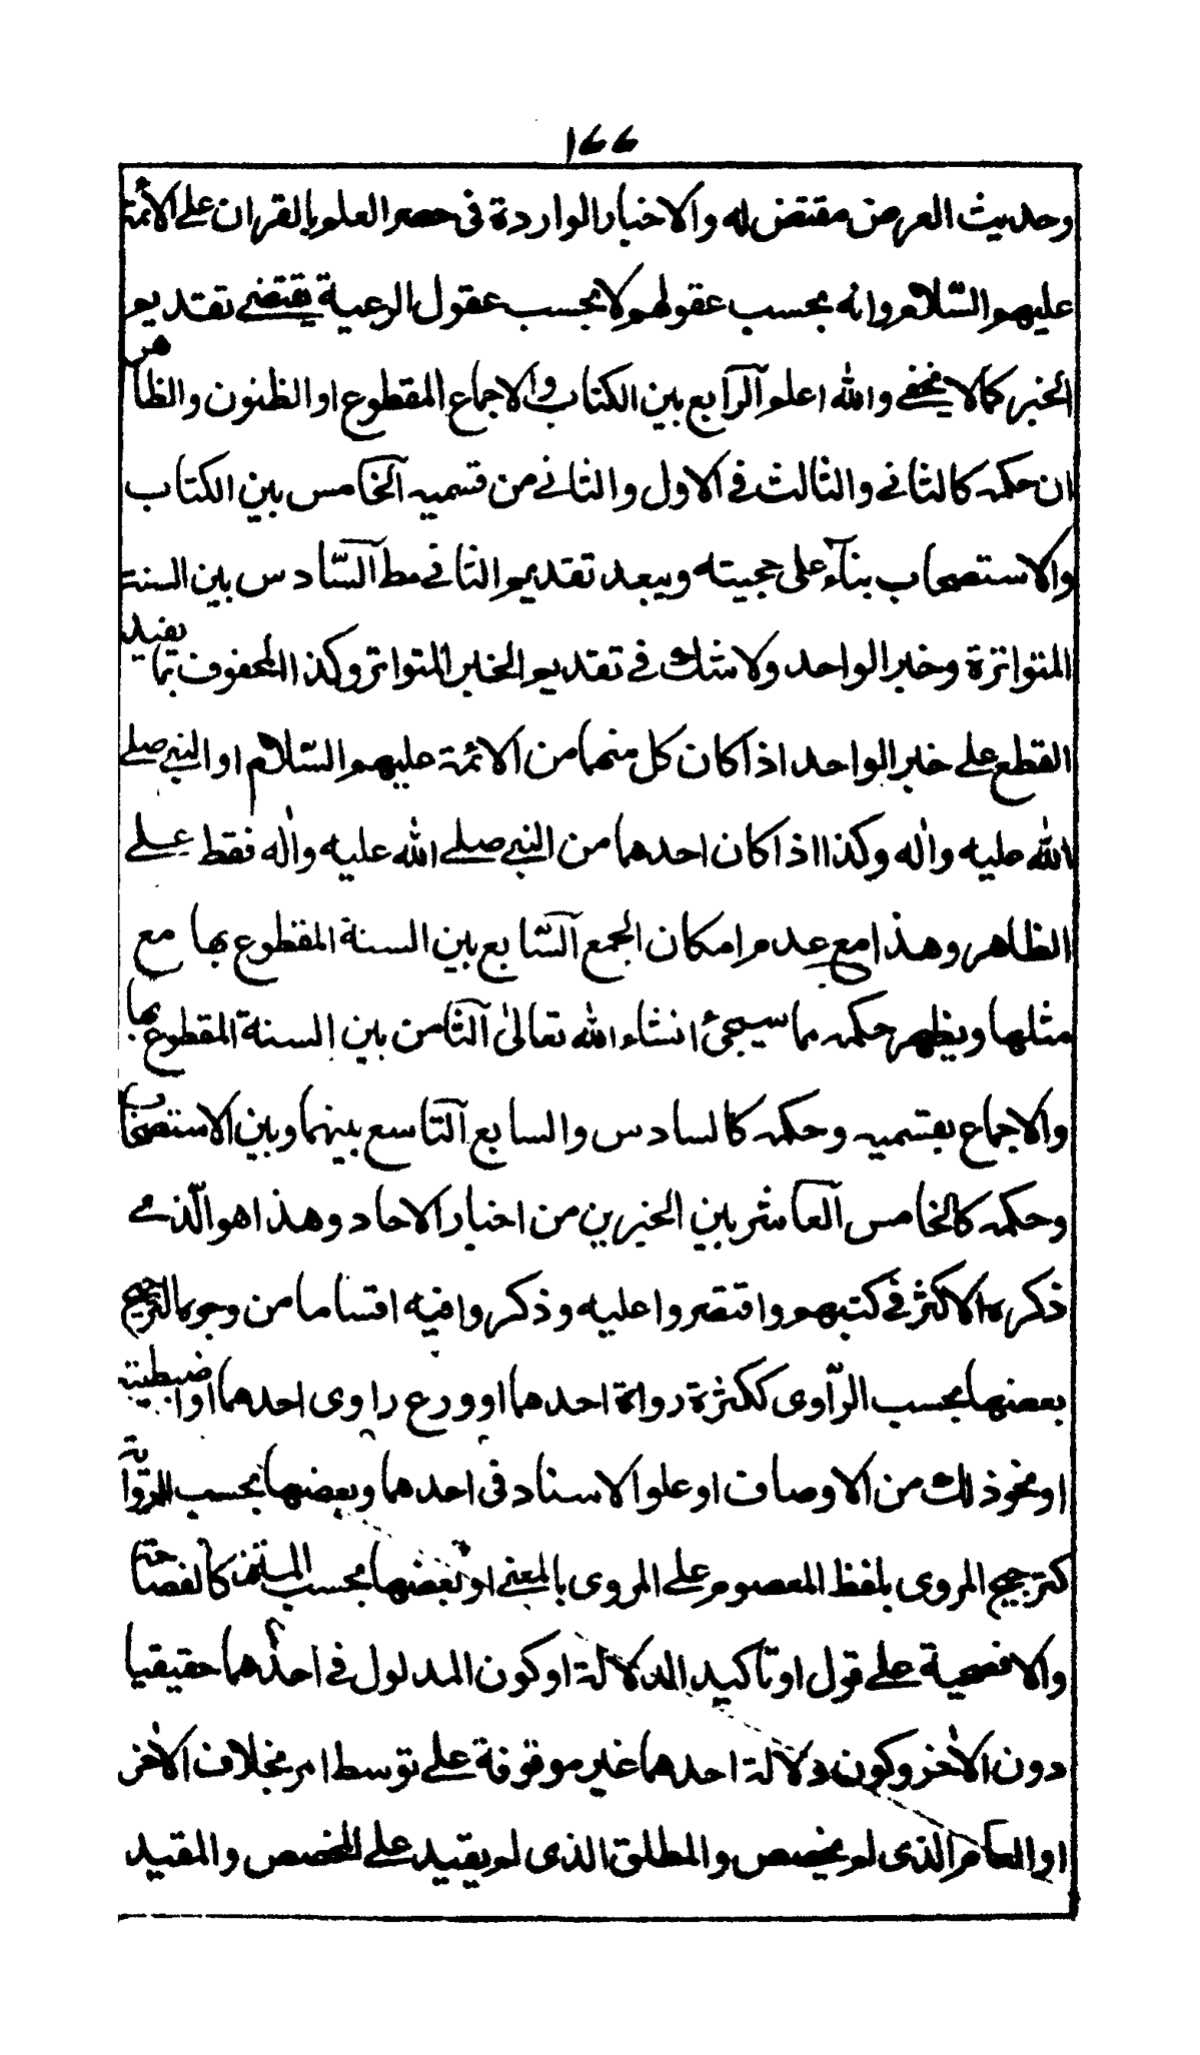 ١٦٦
وحديث العرض مقتض له والاخبار الواردة فى حصر العلم بالقران على الأئمة
عليهم السّلام وانه بحسب عقولهم لا بحسب عقول الرعية يقتضے تقديم
الخبر كما لا يخفے والله اعلم آلرابع بين الكتاب والاجماع المقطوع او الظنون والظاهر
ان حكمه كالثانے والثالث فے الاول والثانے من قسميه آلخامس بين الكتاب
والاستصحاب بناءً على حجيته ويبعد تقديم الثانے مط آلسّادس بين السنة
المتواترة وخبر الواحد ولا شك فے تقديم الخبر المتواتر وكذا المحفوف بما يفيد
القطع علے خبر الواحد اذا كان كل منهما من الائمة عليهم السّلام او النبے صلے
الله عليه واٰله وكذا اذا كان احدهما من النبے صلے الله عليه واٰله فقط علے
الظاهر وهذا مع عدم امكان الجمع آلسّابع بين السنة المقطوع بها مع
مثلها ويظهر حكمه مما سيجئ انشاء الله تعالىٰ آلثامن بين السنة المقطوع بها
والاجماع بقسميه وحكمه كالسادس والسابع آلتاسع بينهما وبين الاستصحاب
وحكمه كالخامس آلعاشر بين الخبرين من اخبار الاحاد وهذا هو الّذے
ذكره الاكثر فے كتبهم واقتصروا عليه وذكروا فيه اقساما من وجوه الترجيح
بعضها بحسب الرّاوى ككثرة رواة احدهما او ورع راوى احدهما او اضبطيته
او نحو ذلك من الاوصاف او علو الاسناد فى احدهما وبعضها بحسب الرّواية
كترجيح المروى بلفظ المعصوم علے المروى بالمعنے او بعضها بحسب المتن كالفصاحة
والافصحية علے قول او تاكيد الدلالة او كون المدلول فے احدهما حقيقيا
دون الاٰخر وكون دلالة احدهما غير موقوفة علے توسط امر بخلاف الاٰخر
او العام الذى لم يخصص والمطلق الذى لم يقيد علے المخصص والمقيد